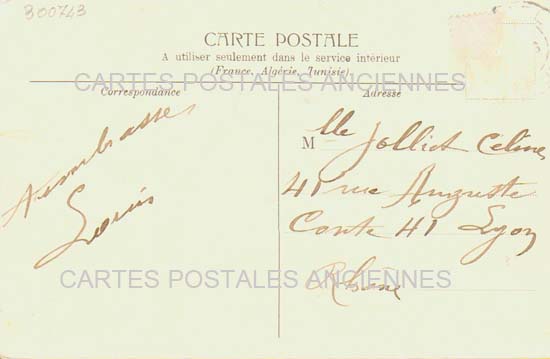 300743
CARTE POSTALE
A utiliser seulement dans le service intérieur
(France, Algérie, Tunisie)
CARTES POSTALES ANCIENNES
Correspondance
Adresse
Louis
Mlle Jolliot Céline
41 rue Auguste
Conte 41 Lyon
Rhône
CARTES POSTALES ANCIENNES